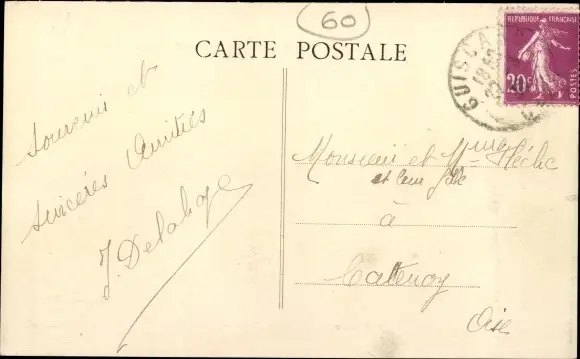 60
CARTE POSTALE
REPUBLIQUE FRANÇAISE
20c
POSTES
GUISCA
18 50
Souvenir et
sincères Amitiés
J. Delahaye
Monsieur et Mme
et leur fille
à
Catenoy
Oise